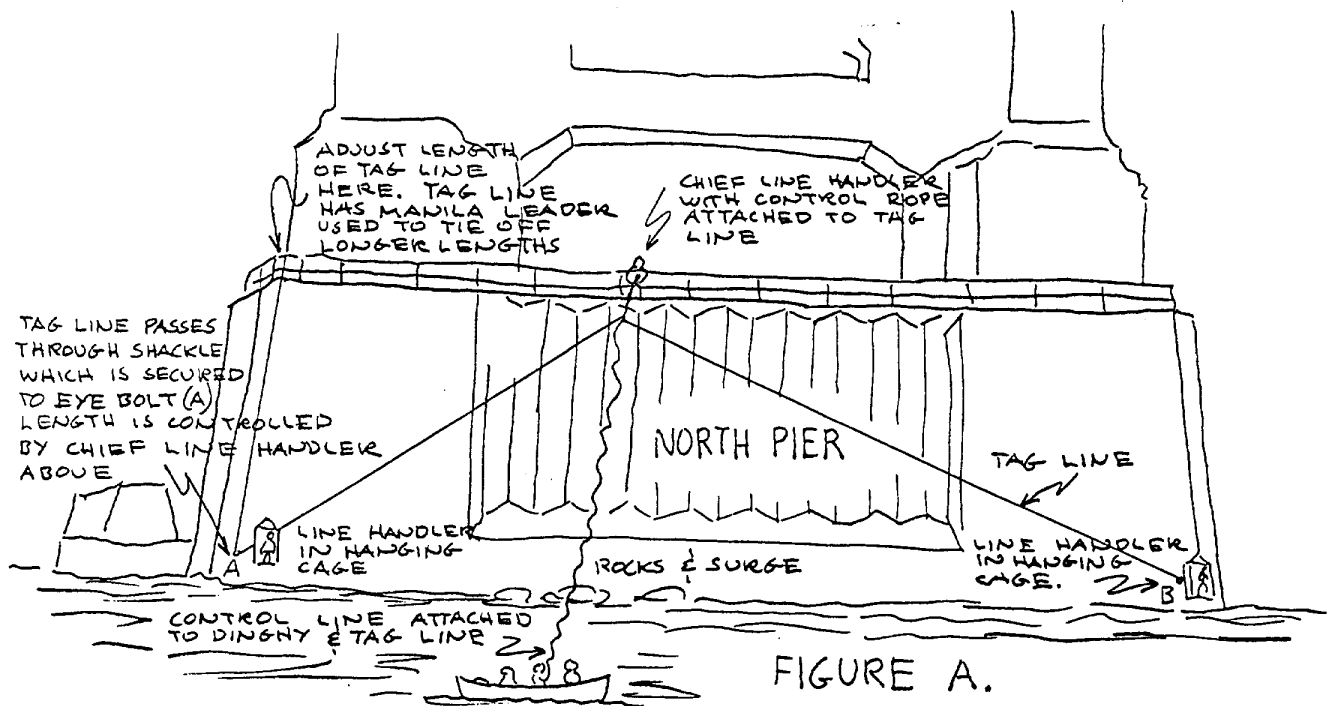 ADJUST LENGTH
OF TAG LINE
HERE. TAG LINE
HAS MANILA LEADER
USED TO TIE OFF
LONGER LENGTHS
CHIEF LINE HANDLER
WITH CONTROL ROPE
ATTACHED TO TAG
LINE
TAG LINE PASSES
THROUGH SHACKLE
WHICH IS SECURED
TO EYE BOLT (A)
LENGTH IS CONTROLLED
BY CHIEF LINE HANDLER
ABOVE
NORTH PIER
TAG LINE
A
LINE HANDLER
IN HANGING
CAGE
ROCKS & SURGE
LINE HANDLER
IN HANGING
CAGE.
B
CONTROL LINE ATTACHED
TO DINGHY & TAG LINE
FIGURE A.